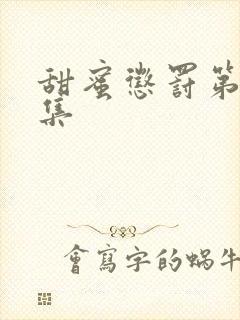 甜蜜懲罰第
集
會寫字的蝸牛